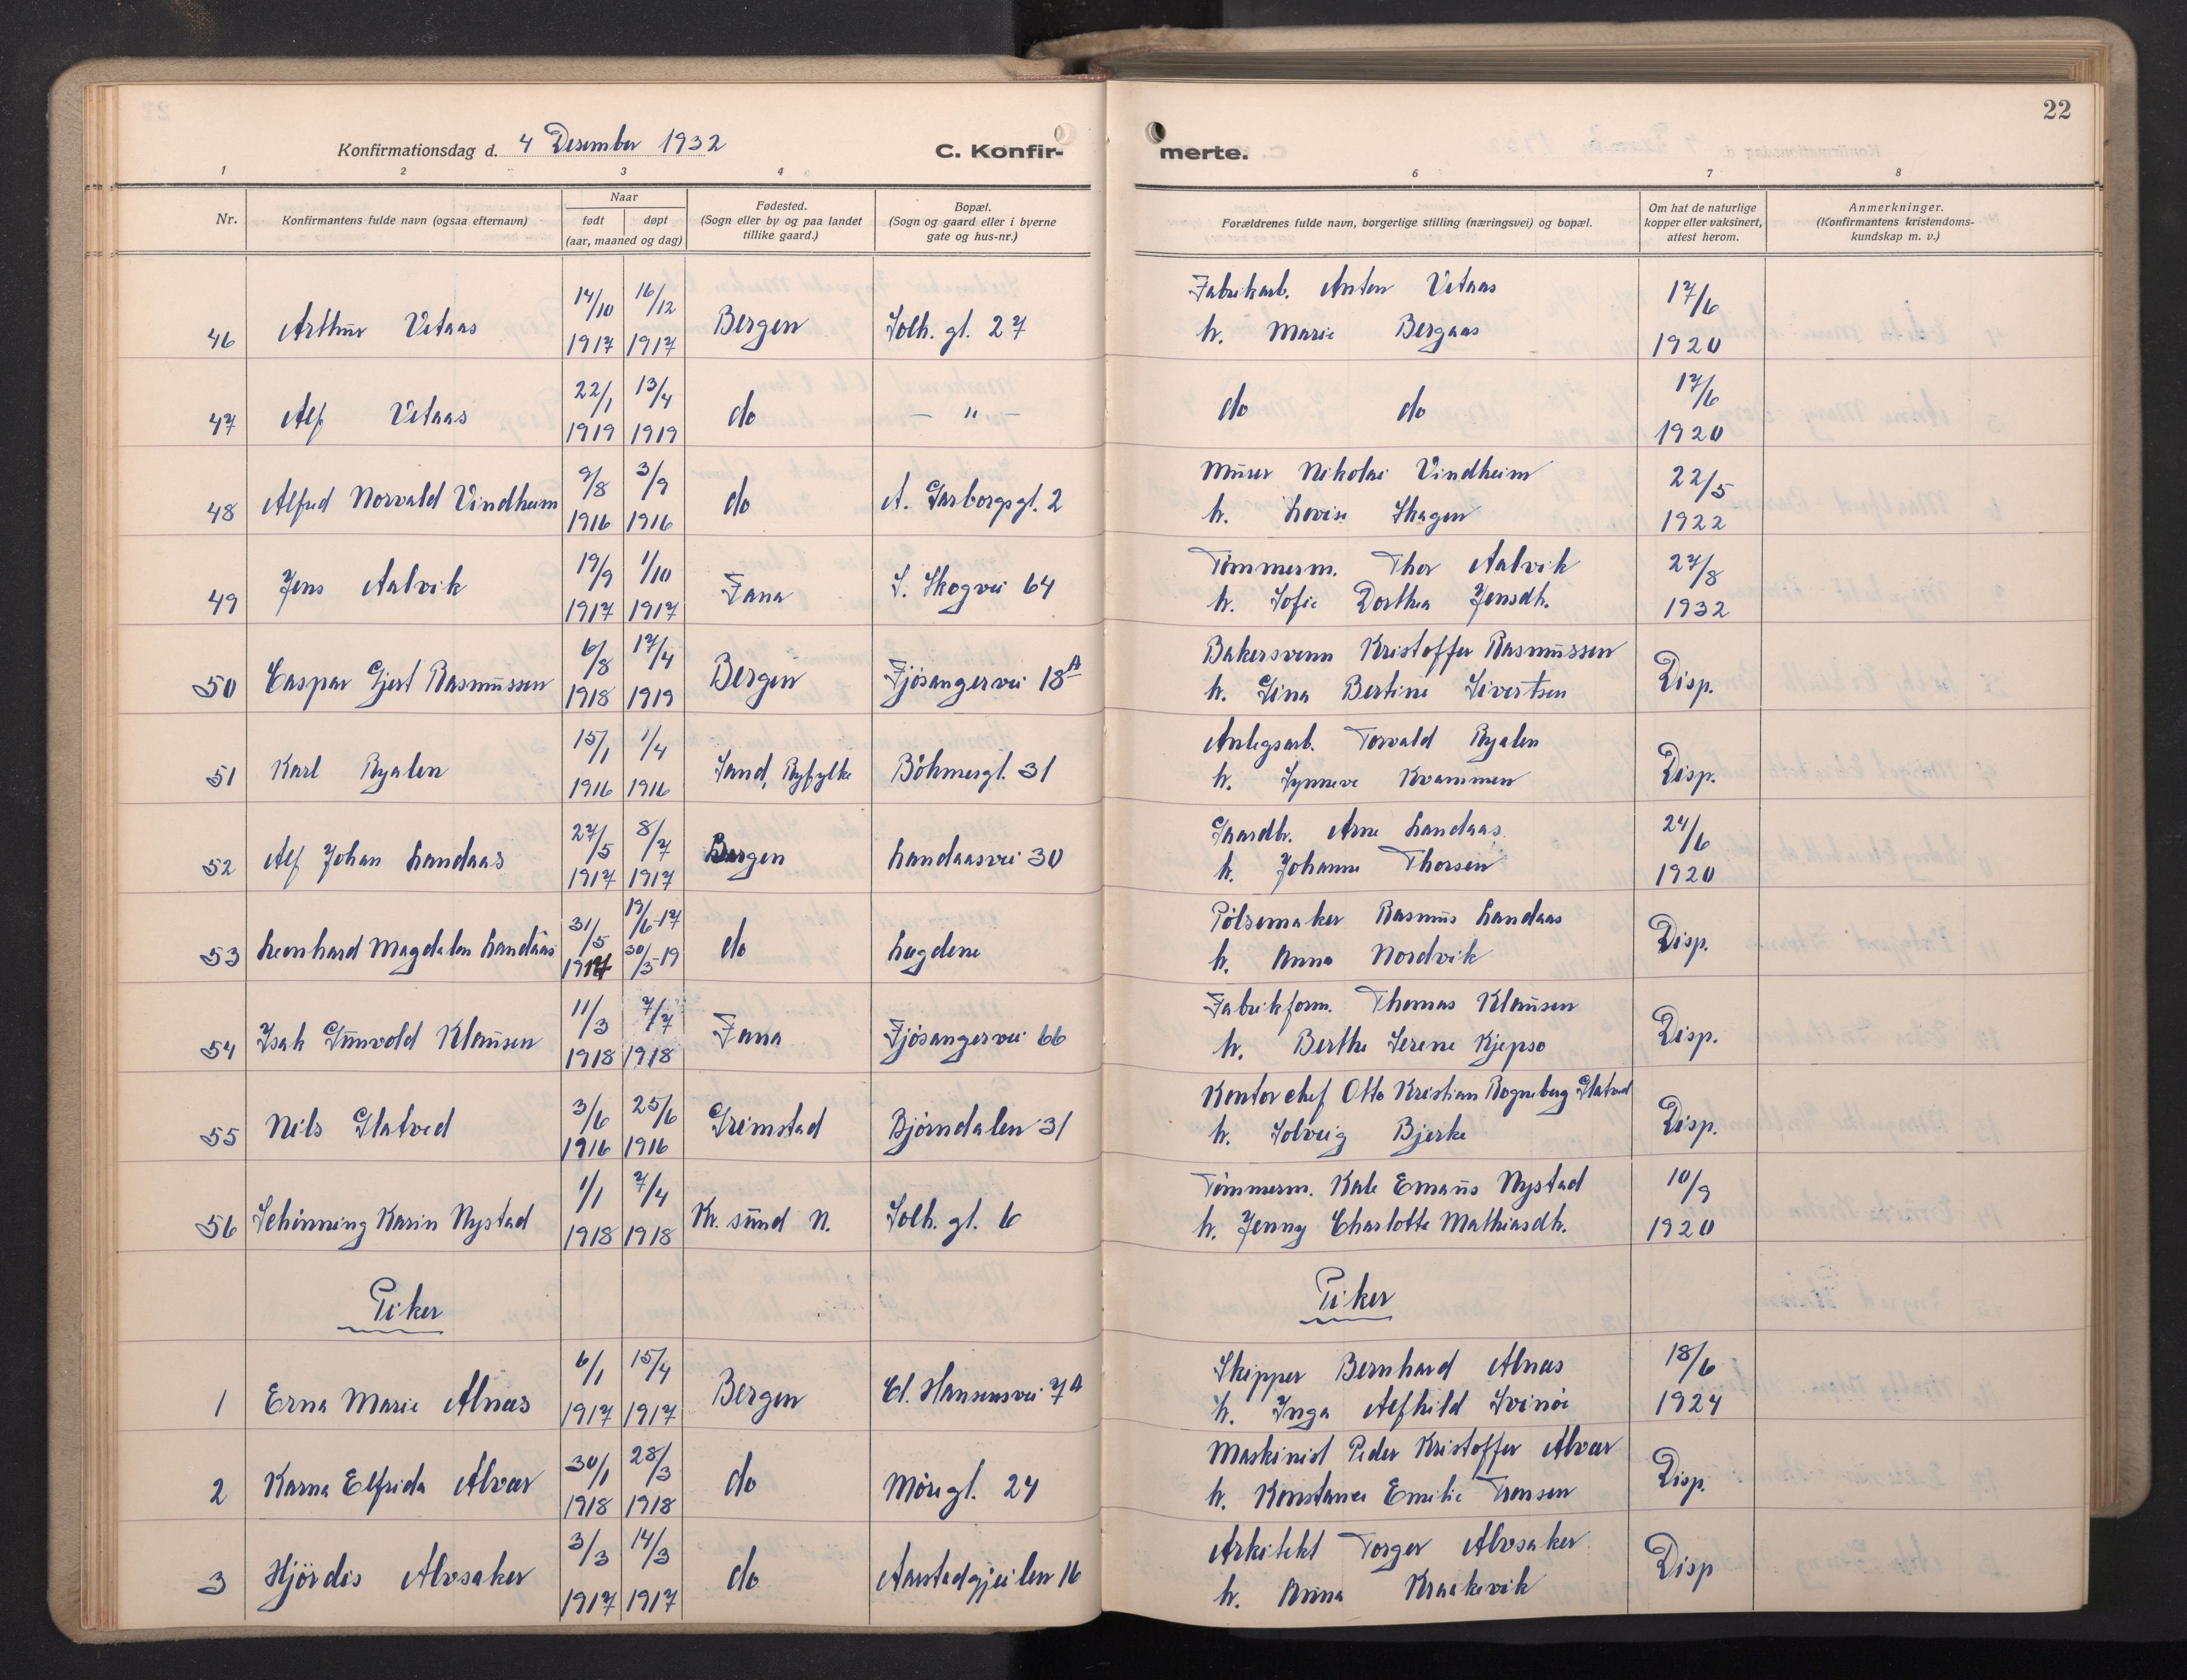 22
Konfirmationsdag d. 4 Desember 1932
C. Konfir-
merte.
1 2 3 4 5 6 7 8
Nr.
Konfirmantens fulde navn (ogsaa efternavn)
Naar
født døpt
(aar, maaned og dag)
Fødested.
(Sogn eller by og paa landet
tillike gaard.)
Bopæl.
(Sogn og gaard eller i byerne
gate og hus-nr.)
Forældrenes fulde navn, borgerlige stilling (næringsvei) og bopæl.
Om hat de naturlige
kopper eller vaksinert,
attest herom.
Anmerkninger.
(Konfirmantens kristendoms-
kundskap m. v.)
14/10 16/12 Fabrikarb. Anton Vetaas 17/6
46 Arthur Vetaas 1917 1917 Bergen Solh. gt. 27 h. Marie Bergaas 1920
22/1 13/4 17/6
47 Alf Vetaas 1919 1919 do - " - do do 1920
9/8 3/9 Murer Nikolai Vindheim 22/5
48 Alfred Norvald Vindheim 1916 1916 do A. Garborgsgt. 2 h. Lovise Skagen 1922
19/9 1/10 Tømmerm. Thor Aalvik 27/8
49 Jens Aalvik 1917 1917 Fana S. Skogvei 64 h. Sofie Dorthea Jensdh. 1932
6/8 17/4 Bakersvenn Kristoffer Rasmussen
50 Caspar Gjert Rasmussen 1918 1919 Bergen Fjøsangervei 18A h. Gina Bertine Sivertsen Disp.
15/1 1/4 Anlegsarb. Torvald Ryalen
51 Karl Ryalen 1916 1916 Sand, Ryfylke Bøhmergt. 31 h. Synneve Kvammen Disp.
27/5 8/7 Gaardbr. Arne Landaas 24/6
52 Alf Johan Landaas 1917 1917 Bergen Landaasvei 30 h. Johanne Thorsen 1920
31/5 19/6-17 Pølsemaker Rasmus Landaas
53 Leonhard Magdalon Landaas 1917 30/5-19 do Lægdene h. Anna Nordvik Disp.
11/3 7/7 Fabrikform. Thomas Klausen
54 Isak Gunvold Klausen 1918 1918 Fana Fjøsangervei 66 h. Berthe Serene Kjepso Disp.
3/6 25/6 Kontorchef Otto Kristian Rogneberg Glatved
55 Nils Glatved 1916 1916 Grimstad Bjørndalen 31 h. Solveig Bjerke Disp.
1/1 7/4 Tømmerm. Kale Emaus Nystad 10/9
56 Schønning Karin Nystad 1918 1918 Kr. sund N. Solh. gt. 6 h. Jenny Charlotte Mathiasdh. 1920
Piker Piker
6/1 15/4 Skipper Bernhard Alnæs 18/6
1 Erna Marie Alnæs 1917 1917 Bergen Cl. Hansensvei 7A h. Inga Alfhild Svinøi 1924
30/1 28/3 Maskinist Peder Kristoffer Alvær
2 Karna Elfrida Alvær 1918 1918 do Møregt. 24 h. Konstance Emilie Tronsen Disp.
3/3 14/3 Arkitekt Torger Alvsaker
3 Hjördis Alvsaker 1917 1917 do Aarstadgjeilen 16 h. Anna Kraakevik Disp